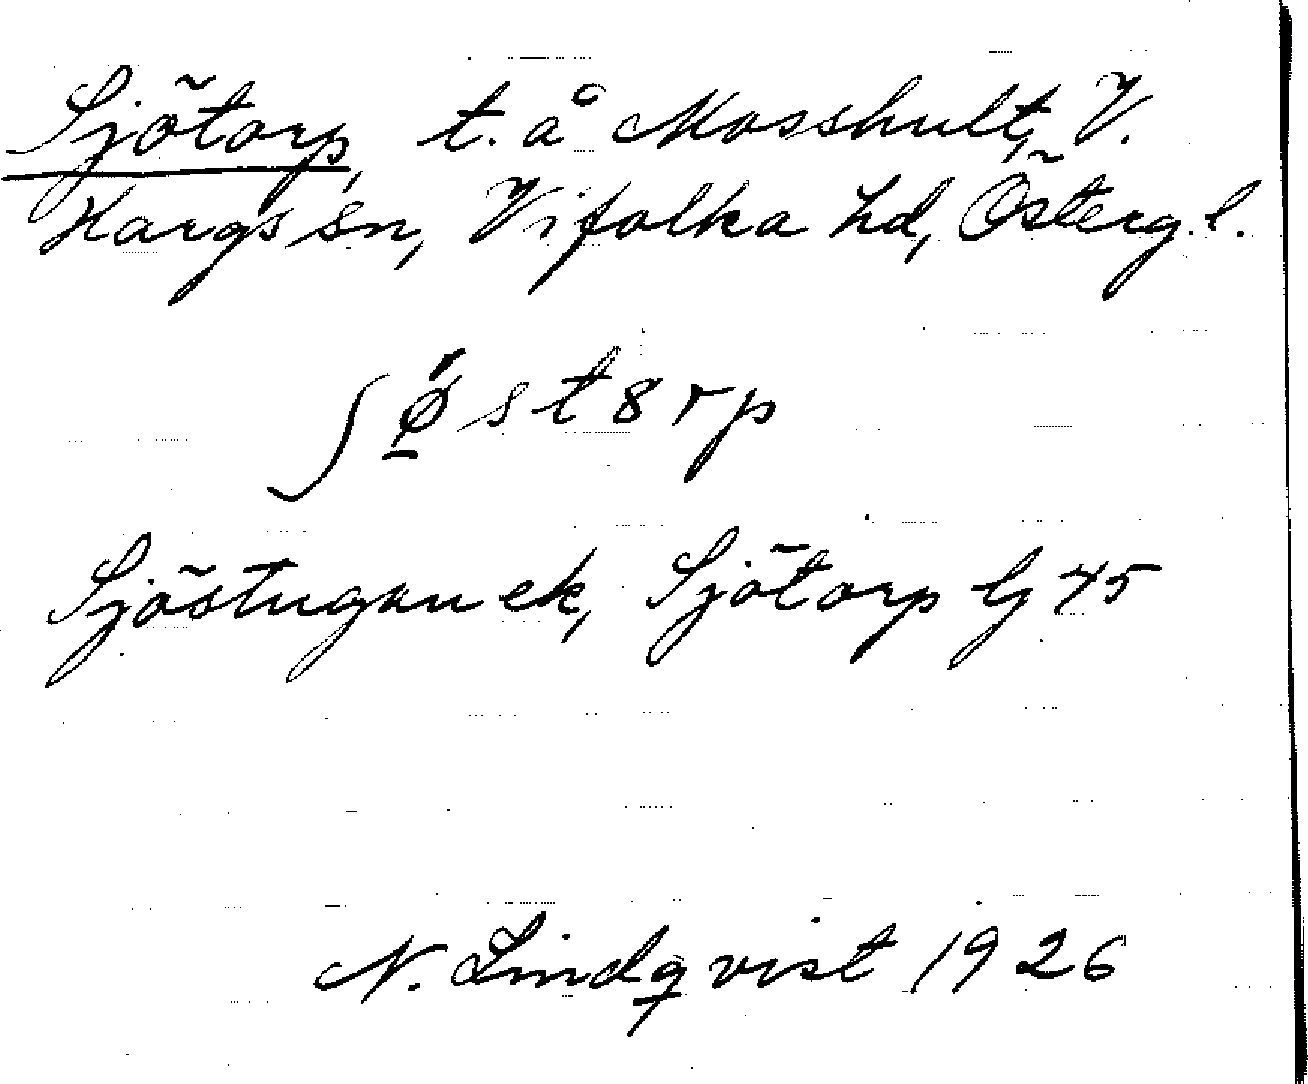 Sjötorp, t. å Mosshult, V.
Hargs sn, Vifolka hd, Österg. l.
ʃǿ̱st8rp
Sjöstugan ek, Sjötorp lj 45
N. Lindqvist 1926